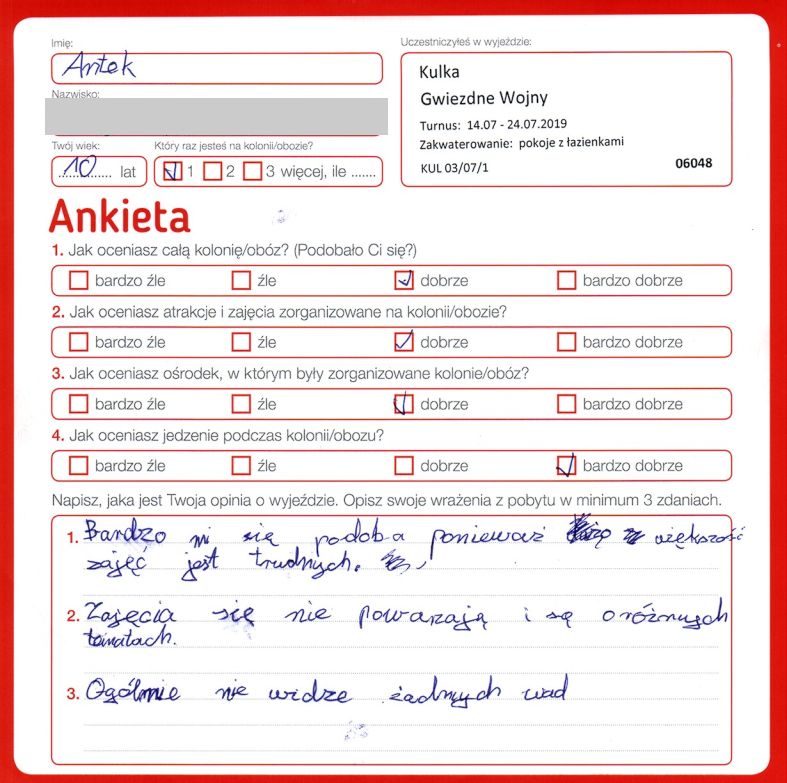 Imię:
Antek
Uczestniczyłeś w wyjeździe:
Kulka
Gwiezdne Wojny
Turnus: 14.07 - 24.07.2019
Zakwaterowanie: pokoje z łazienkami
KUL 03/07/1 06048
Nazwisko:
Twój wiek:
10 lat
Który raz jesteś na kolonii/obozie?
1 2 3 więcej, ile .......
Ankieta
1. Jak oceniasz całą kolonię/obóz? (Podobało Ci się?)
bardzo źle źle dobrze bardzo dobrze
2. Jak oceniasz atrakcje i zajęcia zorganizowane na kolonii/obozie?
bardzo źle źle dobrze bardzo dobrze
3. Jak oceniasz ośrodek, w którym były zorganizowane kolonie/obóz?
bardzo źle źle dobrze bardzo dobrze
4. Jak oceniasz jedzenie podczas kolonii/obozu?
bardzo źle źle dobrze bardzo dobrze
Napisz, jaka jest Twoja opinia o wyjeździe. Opisz swoje wrażenia z pobytu w minimum 3 zdaniach.
1. Bardzo mi się podoba ponieważ więkrzość
zajęć jest trudnych.
2. Zajęcia się nie powarzają i są o różnych
3. Ogólnie nie widze żadnych wad